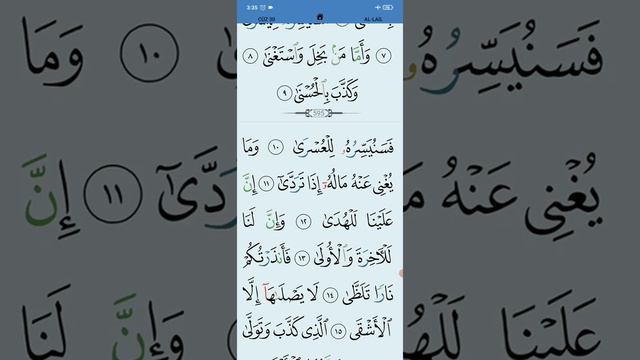 3:35
CÜZ 30
AL-LAIL
٧ وَأَمَّا مَنۢ بَخِلَ وَٱسْتَغْنَىٰ ٨
وَكَذَّبَ بِٱلْحُسْنَىٰ ٩
595
فَسَنُيَسِّرُهُۥ لِلْعُسْرَىٰ ١٠ وَمَا
يُغْنِى عَنْهُ مَالُهُۥٓ إِذَا تَرَدَّىٰٓ ١١ إِنَّ
عَلَيْنَا لَلْهُدَىٰ ١٢ وَإِنَّ لَنَا
لَلْـَٔاخِرَةَ وَٱلْأُولَىٰ ١٣ فَأَنذَرْتُكُمْ
نَارًا تَلَظَّىٰ ١٤ لَا يَصْلَىٰهَآ إِلَّا
ٱلْأَشْقَى ١٥ ٱلَّذِى كَذَّبَ وَتَوَلَّىٰ